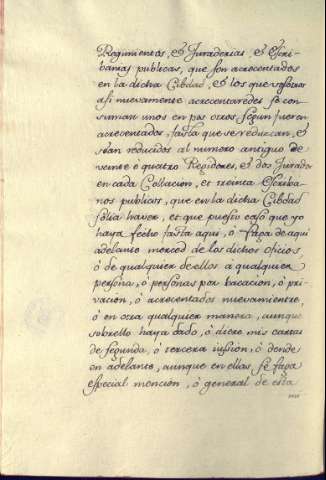 Regimientos, é Juraderias, é Escri-
banias publicas, que son acrecentados
en la dicha Cibdad, é los que vosotros
asi nuevamente acrecentaredes se con-
suman unos en pos otros segun fueron
acrecentados, fasta que se reduzcan, é
sean reducidos al numero antiguo de
veinte é quatro Regidores, é dos Jurados
en cada Collacion, et treinta Escriba-
nos publicos, que en la dicha Cibdad
solia haver, et que puesto caso que yo
haya fecho fasta aqui, ó faga de aqui
adelante merced de los dichos oficios,
ó de qualquier de ellos a qualquier
persona, ó personas por vacacion, ó pri-
vación, ó acrecentados nuevamente,
ó en otra qualquier manera, aunque
sobrello haya dado, ó diere mis cartas
de segunda, ó tercera iusión, ó dende
en adelante, aunque en ellas se faga
especial mencion, ó general de esta